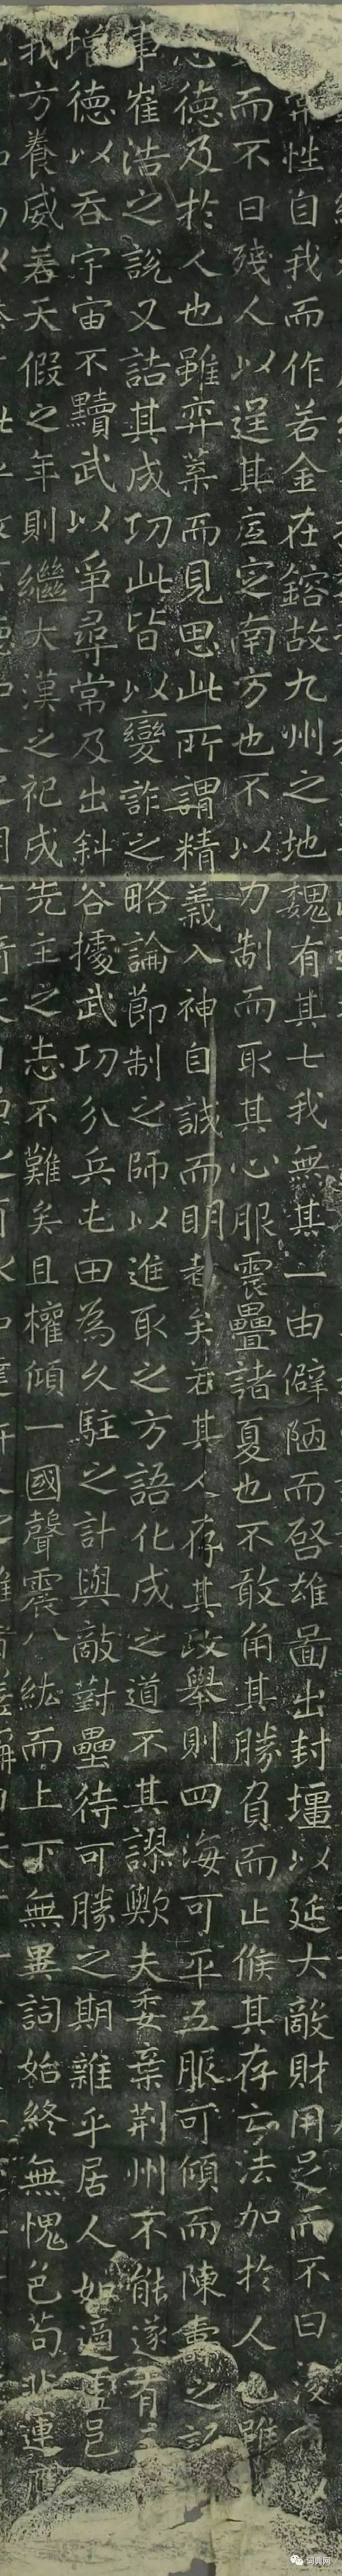 常性自我而作若金在鎔故九州之地魏有其七我無其一由僻陋而啓雄圖出封壃以延大敵財用足而不曰浚
而不曰殘人以逞其底定南方也不以力制而取其心服震疊諸夏也不敢角其勝負而止候其存亡法加於人也雖
心德及於人也雖弈葉而見思此所謂精義入神自誠而明者矣若其人存其政舉則四海可平五服可傾而陳壽之
事崔浩之說又詰其成功此皆以變詐之略論節制之師以進取之方語化成之道不其謬歟夫委棄荊州不能遂有
增德以吞宇宙不黷武以爭尋常及出斜谷據武功分兵屯田為久駐之計與敵對壘待可勝之期雜乎居人如適虛邑
我方養威若天假之年則繼大漢之祀成先主之志不難矣且權傾一國聲震八紘而上下無異詞始終無愧色苟非運
词典网